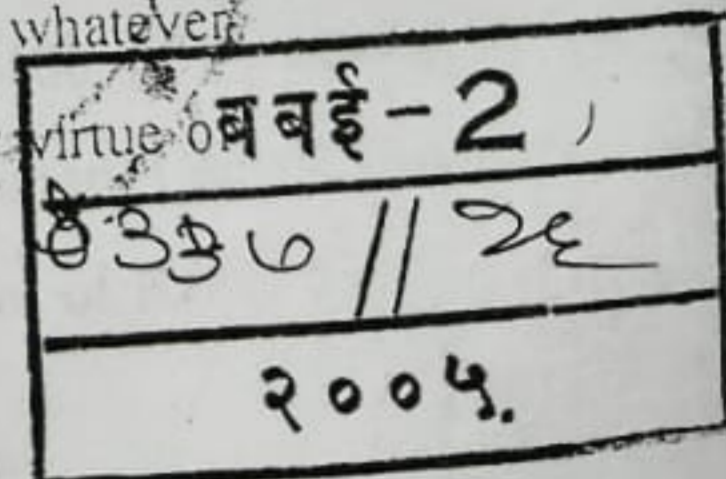 whatever
virtue of
बबई - 2
३३७ // २६
२००५.